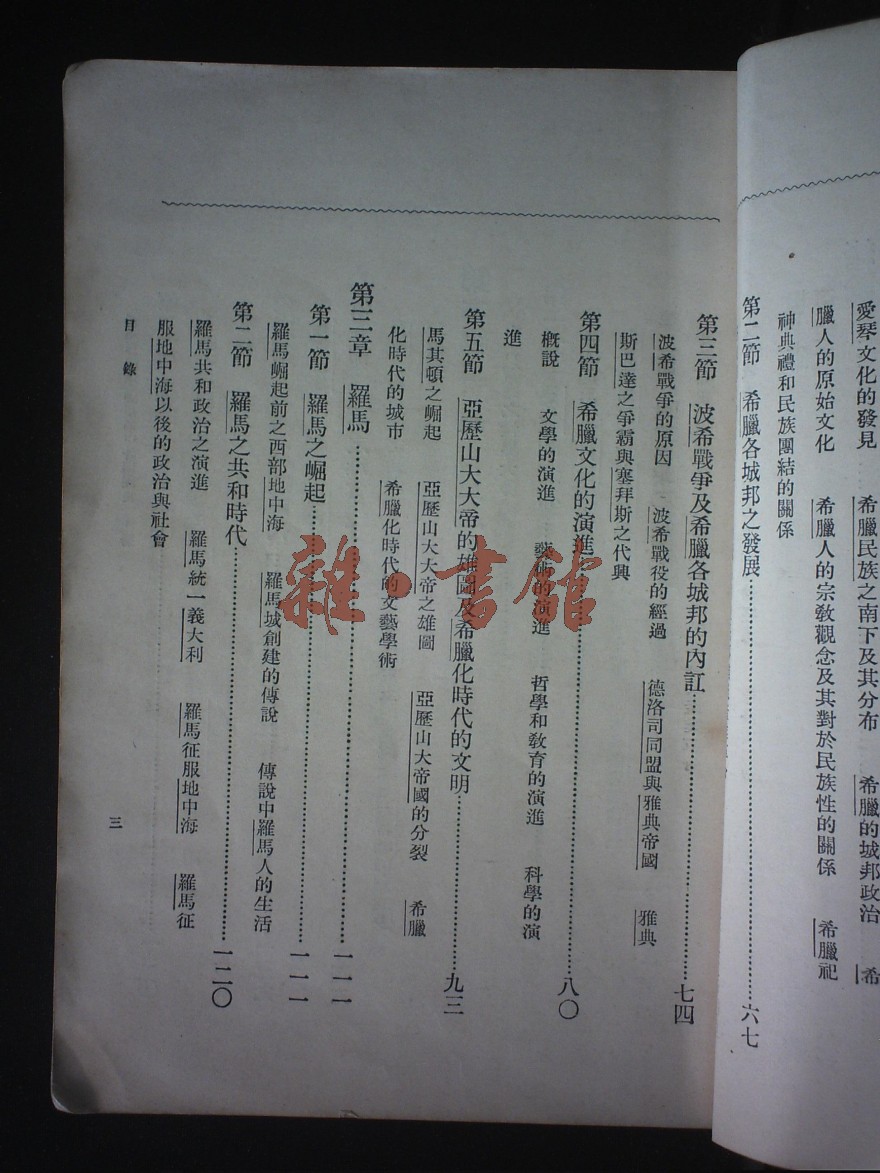 愛琴文化的發見　希臘民族之南下及其分布　希臘的城邦政治　希
臘人的原始文化　希臘人的宗教觀念及其對於民族性的關係　希臘祀
神典禮和民族團結的關係
第二節　希臘各城邦之發展…………六七
第三節　波希戰爭及希臘各城邦的內訌…………七四
波希戰爭的原因　波希戰役的經過　德洛司同盟與雅典帝國　雅典
斯巴達之爭霸與塞拜斯之代興
第四節　希臘文化的演進…………八〇
概說　文學的演進　藝術的演進　哲學和教育的演進　科學的演
進
第五節　亞歷山大大帝的雄圖及希臘化時代的文明…………九三
馬其頓之崛起　亞歷山大大帝之雄圖　亞歷山大帝國的分裂　希臘
化時代的城市　希臘化時代的文藝學術
第三章　羅馬…………一一一
第一節　羅馬之崛起…………一一一
羅馬崛起前之西部地中海　羅馬城創建的傳說　傳說中羅馬人的生活
第二節　羅馬之共和時代…………一二〇
羅馬共和政治之演進　羅馬統一義大利　羅馬征服地中海　羅馬征
服地中海以後的政治與社會
目錄
三
雜·書館